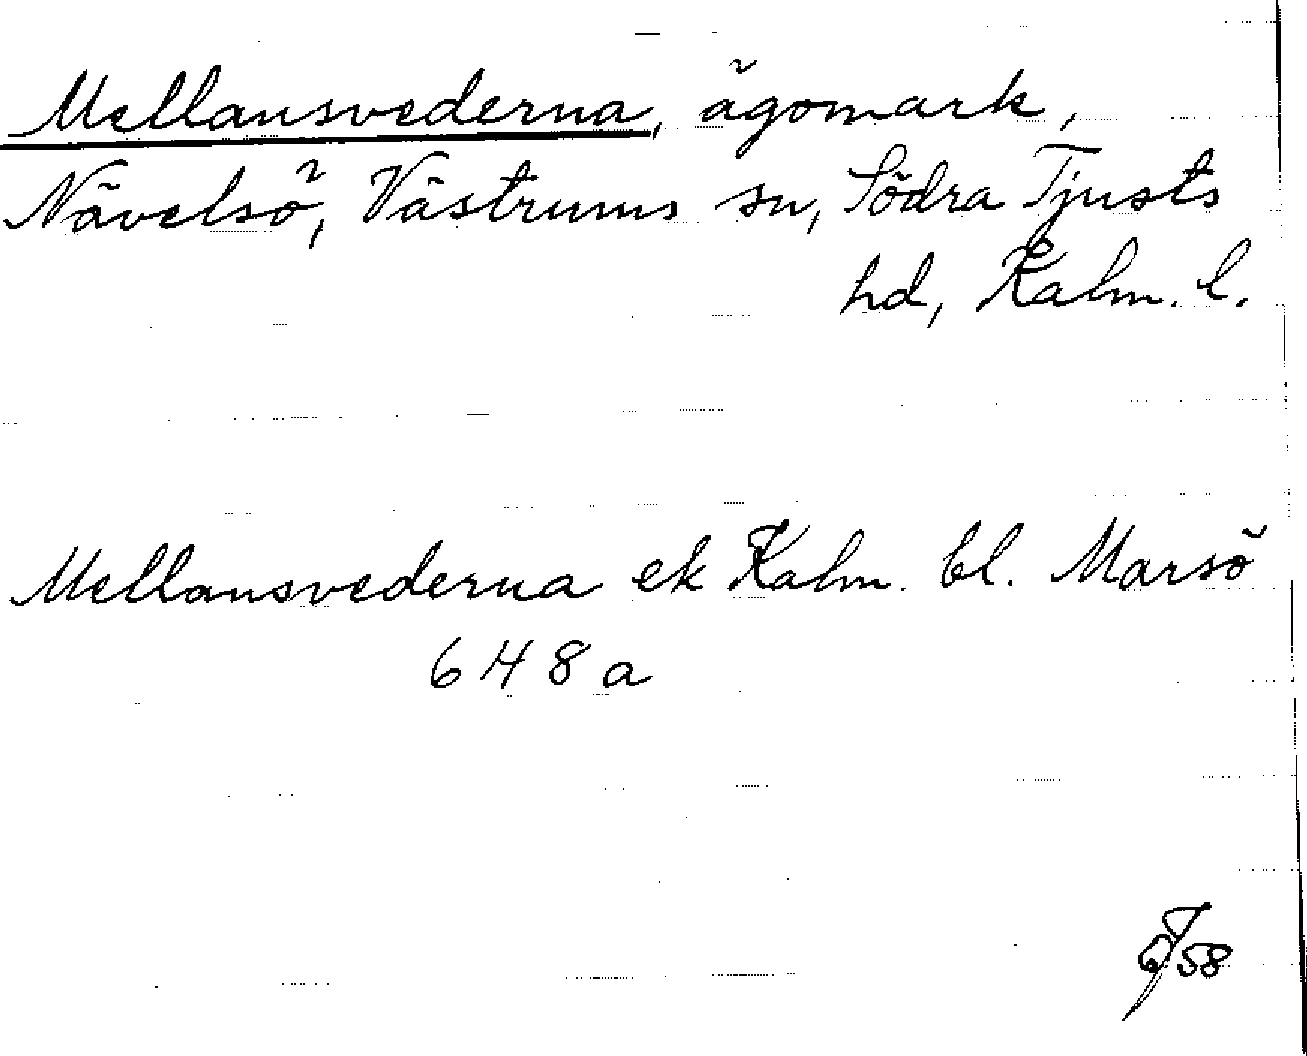 Mellansvederna, ägomark,
Nävelsö, Västrums sn, Södra Tjusts
hd, Kalm. l.
Mellansvederna ek Kalm. bl. Marsö
648a
/58